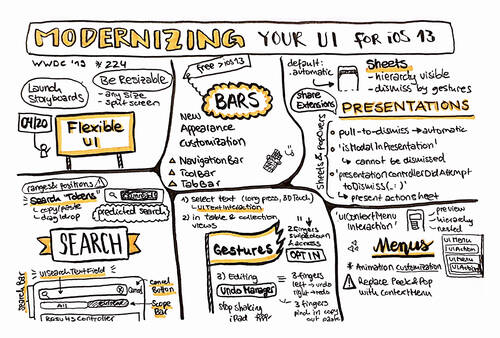 MODERNIZING YOUR UI FOR iOS 13
WWDC '19 # 224
Launch
Storyboards
Be Resizable
- any size
- split screen
04/20
Flexible
UI
free > iOS 13
BARS
New
Appearance
Customization
Navigation Bar
Tool Bar
Tab Bar
default:
.automatic
Share
Extensions
Sheets
- hierarchy visible
- dismiss by gestures
PRESENTATIONS
Sheets & Popovers
pull-to-dismiss → automatic
'isModalInPresentation'
↳ cannot be dismissed
'presentationControllerDidAttempt
ToDismiss(..)'
↳ present action sheet
ranges & positions
"Search Tokens"
- copy/paste
- drag/drop
predicted search
SEARCH
UISearchTextField
Search Bar
Cancel
Cancel
Button
Scope
Bar
All
Results Controller
1) select text (long press, 3D Touch)
UITextInteraction
2) in table & collection
views
Gestures
2 fingers
swipe down
& access
OPT IN
3) Editing
Undo Manager
stop shaking
iPad
3 fingers
left → undo
right → redo
3 fingers
pinch in copy
out paste
'UIContextMenu
Interaction'
preview
hierarchy
nested
Menus
UI Menu
UIAction
UI Menu
UIAction
* Animation customization
Replace Peek & Pop
with Context Menu